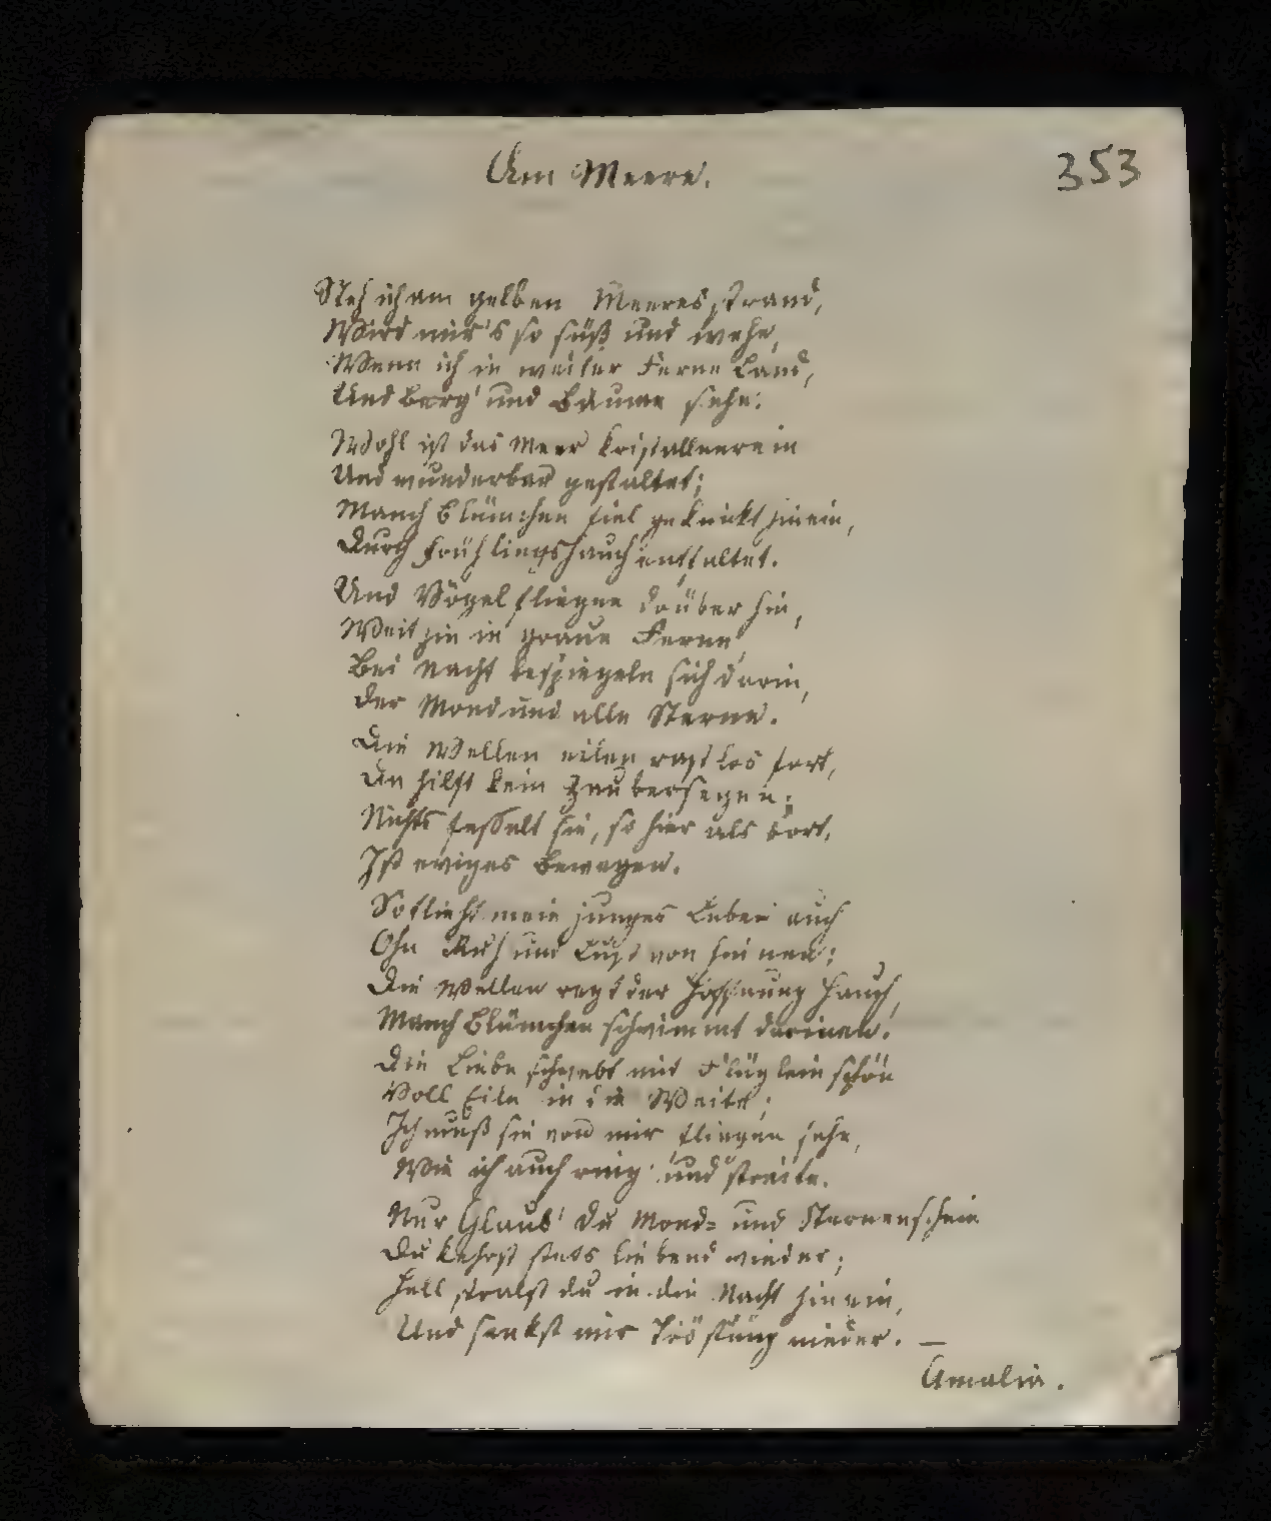 Am Meere.
353
Steh ich am gelben Meeresstrand,
Wird mir's so süß und wehe,
Wenn ich in weiter Ferne Land,
Und Berg' und Bäume sehe:
Wohl ist das Meer kristallnerein
Und wunderbar gestaltet;
Manch Blümchen fiel geknickt hinein,
Durch Frühlingshauch entfaltet.
Und Vögel fliegen drüber hin,
Weit hin in graue Ferne,
Bei Nacht bespiegeln sich darin,
Der Mond und alle Sterne.
Die Wellen eilen rastlos fort,
Da hilft kein Zaubersegen;
Nichts fesselt sie, so hier als dort,
Ist ewiges Bewegen.
So flieht mein junges Leben auch
Ohn Ruh und Lust von hinnen;
Die Wellen regt der Hoffnung Hauch,
Manch Blümchen schwimmt darinnen.
Die Liebe schwebt mit Flüglein schön
Voll Eile in die Weite;
Ich muß sie von mir fliegen sehn,
Wie ich auch ring' und streite.
Nur Glaub' du Mond- und Sternenschein
Du kehrst stets liebend wieder;
Hell stralst du in die Nacht hinein,
Und senkst mir Tröstung nieder. —
Amalia.